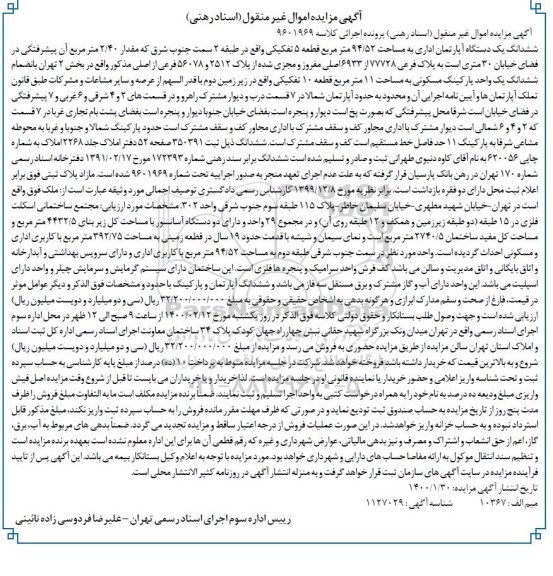 آگهی مزایده اموال غیر منقول (اسناد رهنی)
آگهی مزایده اموال غیر منقول (اسناد رهنی) پرونده اجرائی کلاسه ۹۶۰۱۹۶۹
ششدانگ یک دستگاه آپارتمان اداری به مساحت ۹۴/۵۲ متر مربع قطعه ۵ تفکیکی واقع در طبقه ۲ سمت جنوب شرق که مقدار ۲/۴۰ متر مربع آن پیشرفتگی در
فضای خیابان ۳۰ متری است به پلاک فرعی ۷۷۷۲۸ از ۶۹۳۳ اصلی مفروز و مجزی شده از پلاک ۲۵۱۲ و ۵۶۰۷۸ فرعی از اصلی مذکور واقع در بخش ۲ تهران بانضمام
ششدانگ یک واحد پارکینگ مسکونی به مساحت ۱۱ متر مربع قطعه ۱۰ تفکیکی واقع در زیر زمین دوم با قدر السهم از عرصه و سایر مشاعات و مشترکات طبق قانون
تملک آپارتمان ها و آیین نامه اجرایی آن و محدوده به حدود آپارتمان شمالا در ۷ قسمت درب و دیوار مشترک راهرو و در قسمت های ۲ و ۴ شرقی و ۶ غربی و ۷ پیشرفتگی
در فضای خیابان است شرقا محل پیشرفتگی که بصورت پخ است دیوار و پنجره است بفضای خیابان جنوبا دیوار و پنجره است بفضای پشت بام تجاری غربا در ۷ قسمت
که ۲ و ۴ و ۶ شمالی است دیوار مشترک با اداری مجاور کف و سقف مشترک با اداری مجاور کف و سقف مشترک است حدود پارکینگ شمالا و جنوبا و غربا به محوطه
مشاعی شرقا به پارکینگ ۱۱ حد فاصل خط مستقیم است کف و سقف مشترک است. ششدانگ ذیل ثبت ۳۵۰۳۹۱ صفحه ۵۲ دفتر املاک جلد ۲۲۶۸ املاک به شماره
چاپی ۶۲۰۰۵۶ به نام آقای کاوه دنیوی طهرانی ثبت و صادر و تسلیم شده است ششدانگ برابر سند رهنی شماره ۱۷۲۳۹۳ مورخ ۱۳۹۱/۰۲/۱۷ دفترخانه اسناد رسمی
شماره ۱۷۰ تهران در رهن بانک پارسیان قرار گرفته که به علت عدم اجرای تعهد منجر به صدور اجراییه تحت شماره ۹۶۰۱۹۶۹ شده است. مازاد پلاک ثبتی فوق برابر
اعلام ثبت محل دارای دو فقره بازداشت است. برابر نظریه مورخ ۱۳۹۹/۱۲/۸ کارشناس رسمی دادگستری توصیف اجمالی مورد وثیقه عبارت است از: ملک فوق واقع
است در تهران-خیابان شهید مطهری-خیابان سلیمان خاطر- پلاک ۱۱۵ طبقه سوم جنوب شرقی واحد ۳۰۲. مشخصات مورد ارزیابی: مجتمع ساختمانی اسکلت
فلزی در ۱۵ طبقه (دو طبقه زیرزمین و همکف و ۱۲ طبقه روی آن) و در مجموع ۲۹ واحد و دارای دو دستگاه آسانسور با مساحت کل زیر بنای ۴۴۳۲/۵ متر مربع و
مساحت کل مفید ساختمان ۲۷۴۰/۵ متر مربع است و نمای سیمان و شیشه با قدمت حدود ۱۹ سال در قطعه زمینی به مساحت ۳۹۲/۷۵ متر مربع با کاربری اداری
و مسکونی احداث گردیده است. واحد مورد نظر در سمت جنوب شرقی طبقه دوم به مساحت ۹۴/۵۲ متر مربع با کاربری اداری و دارای سرویس بهداشتی و آبدارخانه
و اتاق بایگانی و اتاق مدیریت و سالن می باشد کف فرش واحد سرامیک و پنجره ها فلزی است. این ساختمان دارای سیستم گرمایش و سرمایش چیلر و واحد دارای
اسپلیت می باشد. این واحد دارای آب و گاز مشترک و برق مستقل سه فاز می باشد و ششدانگ آپارتمان و پارکینگ با حدود و مشخصات فوق الذکر و دیگر عوامل موثر
در قیمت، فارغ از صحت و سقم مدارک ابرازی و هر گونه بدهی به اشخاص حقیقی و حقوقی به مبلغ ۳۲/۲۰۰/۰۰۰/۰۰۰ ریال (سی و دو میلیارد و دویست میلیون ریال)
ارزیابی شده است و جهت وصول طلب بستانکار و حقوق دولتی کلاسه فوق الذکر در روز یکشنبه مورخ ۱۴۰۰/۰۲/۱۲ از ساعت ۹ صبح الی ۱۲ ظهر در محل اداره سوم
اجرای اسناد رسمی واقع در تهران میدان ونک بزرگراه شهید حقانی نبش چهارراه جهان کودک پلاک ۳۴ ساختمان معاونت اجرای اسناد رسمی اداره کل ثبت اسناد
و املاک استان تهران سالن مزایده از طریق مزایده حضوری به فروش می رسد و مزایده از مبلغ ۳۲/۲۰۰/۰۰۰/۰۰۰ ریال (سی و دو میلیارد و دویست میلیون ریال)
شروع و به بالاترین قیمت که خریدار داشته باشد فروخته خواهد شد. شرکت در جلسه مزایده منوط به پرداخت ۱۰ (ده) درصد از مبلغ پایه کارشناسی به حساب سپرده
ثبت و تحت شناسه واریز اعلامی و حضور خریدار یا نماینده قانونی او در جلسه مزایده است. لذا خریدار و یا خریداران می بایست تا قبل از شروع وقت مزایده اصل فیش
واریزی مبلغ ودیعه ده درصد به نام خود را به همراه درخواست کتبی به واحد اجرا تسلیم و ثبت نمایند. ضمنا برنده مزایده مکلف است مابه التفاوت مبلغ فروش را ظرف
مدت پنج روز از تاریخ مزایده به حساب صندوق ثبت تودیع نماید و در صورتی که ظرف مهلت مقرر مانده فروش را به حساب سپرده ثبت واریز نکند، مبلغ مذکور قابل
استرداد نبوده و به حساب خزانه واریز خواهد شد. در این صورت عملیات فروش از درجه اعتبار ساقط و مزایده تجدید می گردد. ضمنا بدهی های مربوط به آب، برق،
گاز، اعم از حق انشعاب و اشتراک و مصرف و نیز بدهی مالیاتی، عوارض شهرداری و غیره که رقم قطعی آن ها برای این اداره معلوم نشده است بعهده برنده مزایده است
و تنظیم سند انتقال موکول به ارائه مفاصا حساب های دارایی و شهرداری خواهد بود. مورد مزایده با توجه به اعلام وکیل بستانکار بیمه می باشد. این آگهی پس از تایید
فرآیند مزایده در سایت آگهی های سازمان ثبت قرار خواهد گرفت و به منزله انتشار آگهی در روزنامه کثیر الانتشار محلی است.
تاریخ انتشار آگهی مزایده: ۱۴۰۰/۱/۳۰
میم الف: ۱۰۳۶۷ شناسه آگهی: ۱۱۲۷۰۲۹
رییس اداره سوم اجرای اسناد رسمی تهران - علیرضا فردوسی زاده نائینی